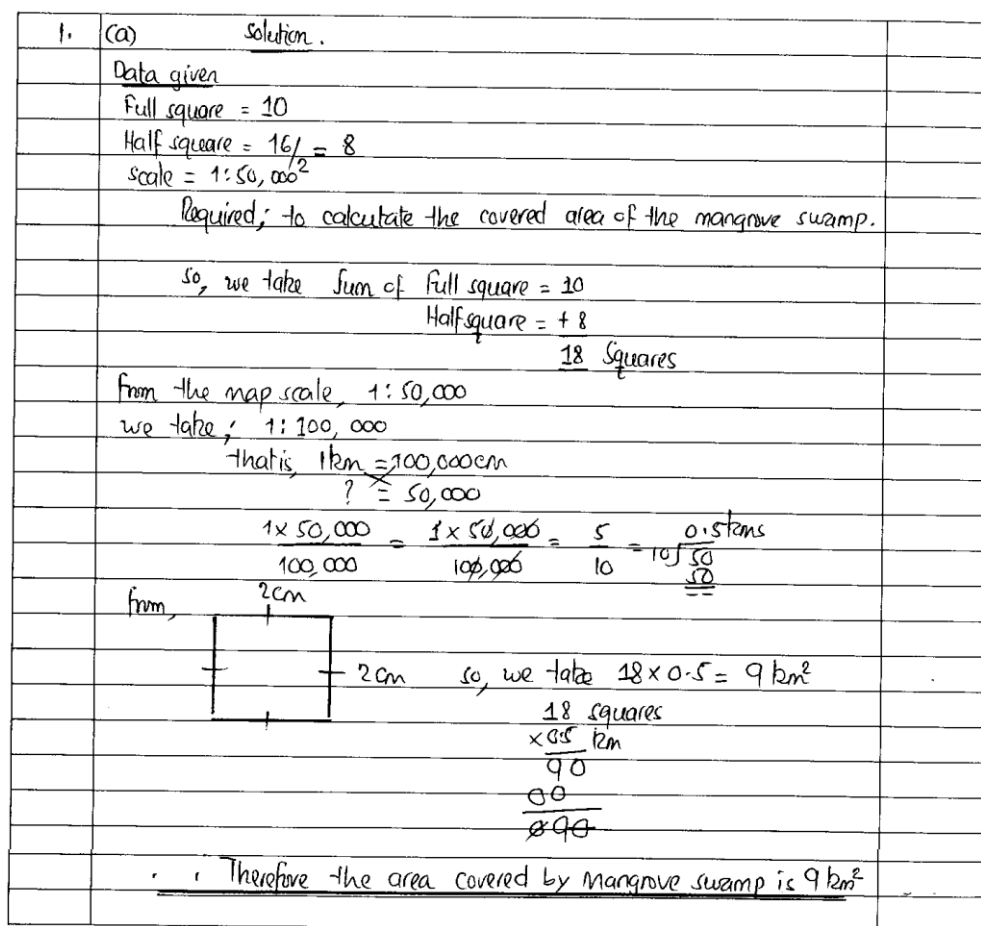 1. (a) Solution.
Data given
Full square = 10
Half square = 16/2 = 8
scale = 1:50,000
Required; to calculate the covered area of the mangrove swamp.
so, we take Sum of Full square = 10
Half square = + 8
18 Squares
From the map scale, 1:50,000
we take; 1:100,000
that is, 1km = 100,000cm
? = 50,000
1 x 50,000 / 100,000 = 1 x 50,000 / 100,000 = 5 / 10 = 0.5kms
10 50
50
from, 2cm
2cm so, we take 18 x 0.5 = 9 km²
18 squares
x 0.5 km
90
00
090
∴ Therefore the area covered by Mangrove swamp is 9 km²